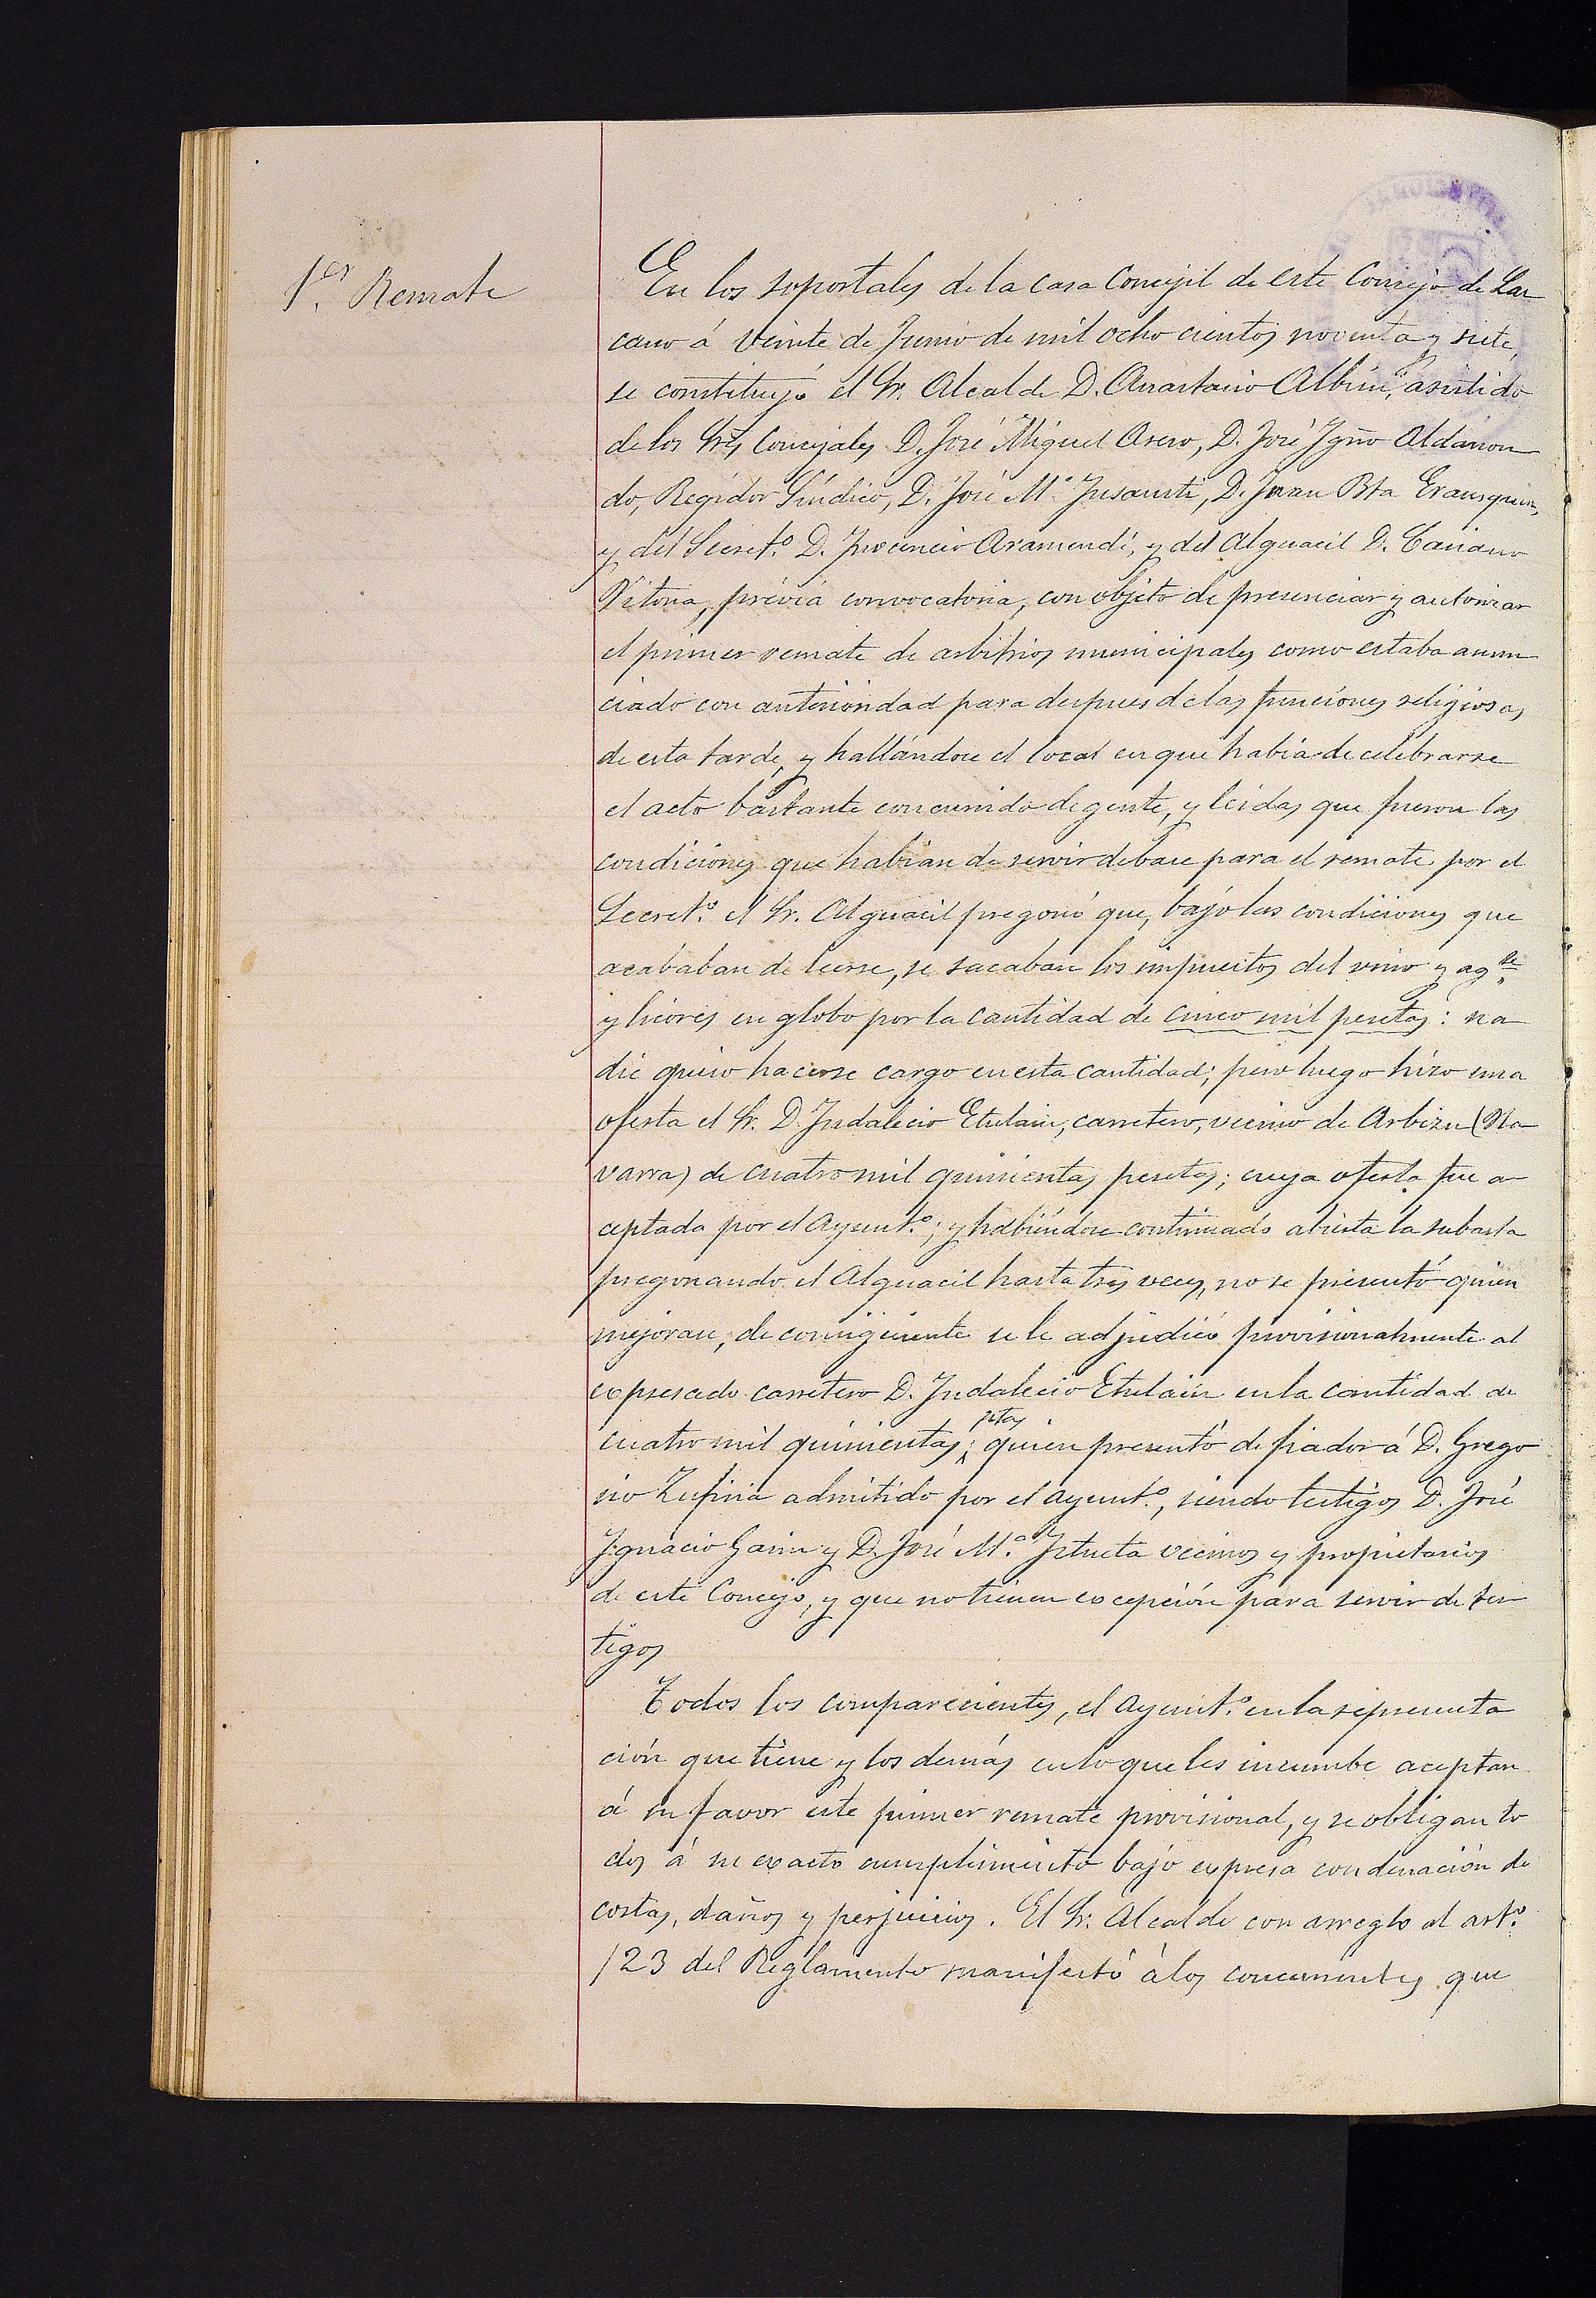 1.er Remate
En los soportales de la casa Concejil de este Concejo de Laz
cano á veinte de Junio de mil ocho cientos noventa y siete,
se constituyó el Sr. Alcalde D. Anastasio Albisu, asistido
de los Sres Concejales D. José Miguel Asero, D. José Ygno Aldason
do, Regidor Síndico, D. José M.ª Jusausti, D. Juan Bta Erausquin,
y del Secret.º D. Inocencio Aramendi, y del Alguacil D. Casiano
Vitoria, prévia convocatoria, con objeto de presenciar y autorizar
el primer remate de arbitrios municipales como estaba anun
ciado con anterioridad para despues de las funciones religiosas
de esta tarde, y hallándose el local en que habia de celebrarse
el acto bastante concurrido de gente, y leidas que fueron las
condiciones que habian de servir de base para el remate por el
Secret.º el Sr. Alguacil pregonó que, bajo las condiciones que
acababan de leerse, se sacaban los impuestos del vino y ag.te
y licores en globo por la cantidad de cinco mil pesetas: na
die quiso hacerse cargo en esta cantidad; pero luego hizo una
oferta el Sr. D. Indalecio Etulain, carretero, vecino de Arbizu (Na
varra) de cuatro mil quinientas pesetas; cuya oferta fue a
ceptada por el Ayunt.º; y habiéndose continuado abierta la subasta
pregonando el Alguacil hasta tres veces, no se presentó quien
mejorase, de consiguiente se le adjudicó provisionalmente al
expresado carretero D. Indalecio Etulain en la cantidad de
cuatro mil quinientas ptas; quien presentó de fiador á D. Grego
rio Zufiria admitido por el Ayunt.º, siendo testigos D. José
Ignacio Garin y D. José M.ª Iztueta vecinos y propietarios
de este Concejo, y que no tienen excepción para servir de tes
tigos
Todos los comparecientes, el Ayunt.º en la representa
ción que tiene y los demás en lo que les incumbe aceptan
á su favor este primer remate provisional, y se obligan to
dos á su exacto cumplimiento bajo expresa condenación de
costas, daños y perjuicios. El Sr. Alcalde con arreglo al art.º
123 del Reglamento manifestó á los concurrentes que